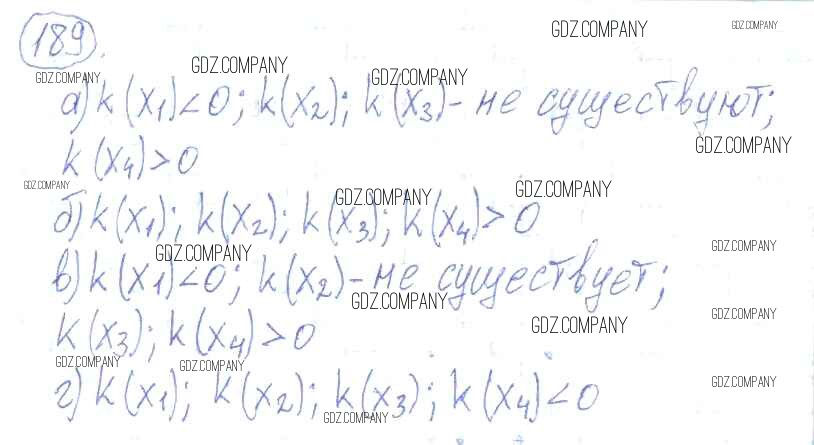 189.
GDZ.COMPANY GDZ.COMPANY
GDZ.COMPANY GDZ.COMPANY GDZ.COMPANY
а) k(x₁)<0; k(x₂); k(x₃) - не существуют;
GDZ.COMPANY
k(x₄)>0
GDZ.COMPANY GDZ.COMPANY GDZ.COMPANY
б) k(x₁); k(x₂); k(x₃); k(x₄)>0
GDZ.COMPANY GDZ.COMPANY
в) k(x₁)<0; k(x₂) - не существует;
GDZ.COMPANY GDZ.COMPANY GDZ.COMPANY
k(x₃); k(x₄)>0
GDZ.COMPANY GDZ.COMPANY GDZ.COMPANY
г) k(x₁); k(x₂); k(x₃); k(x₄)<0
GDZ.COMPANY